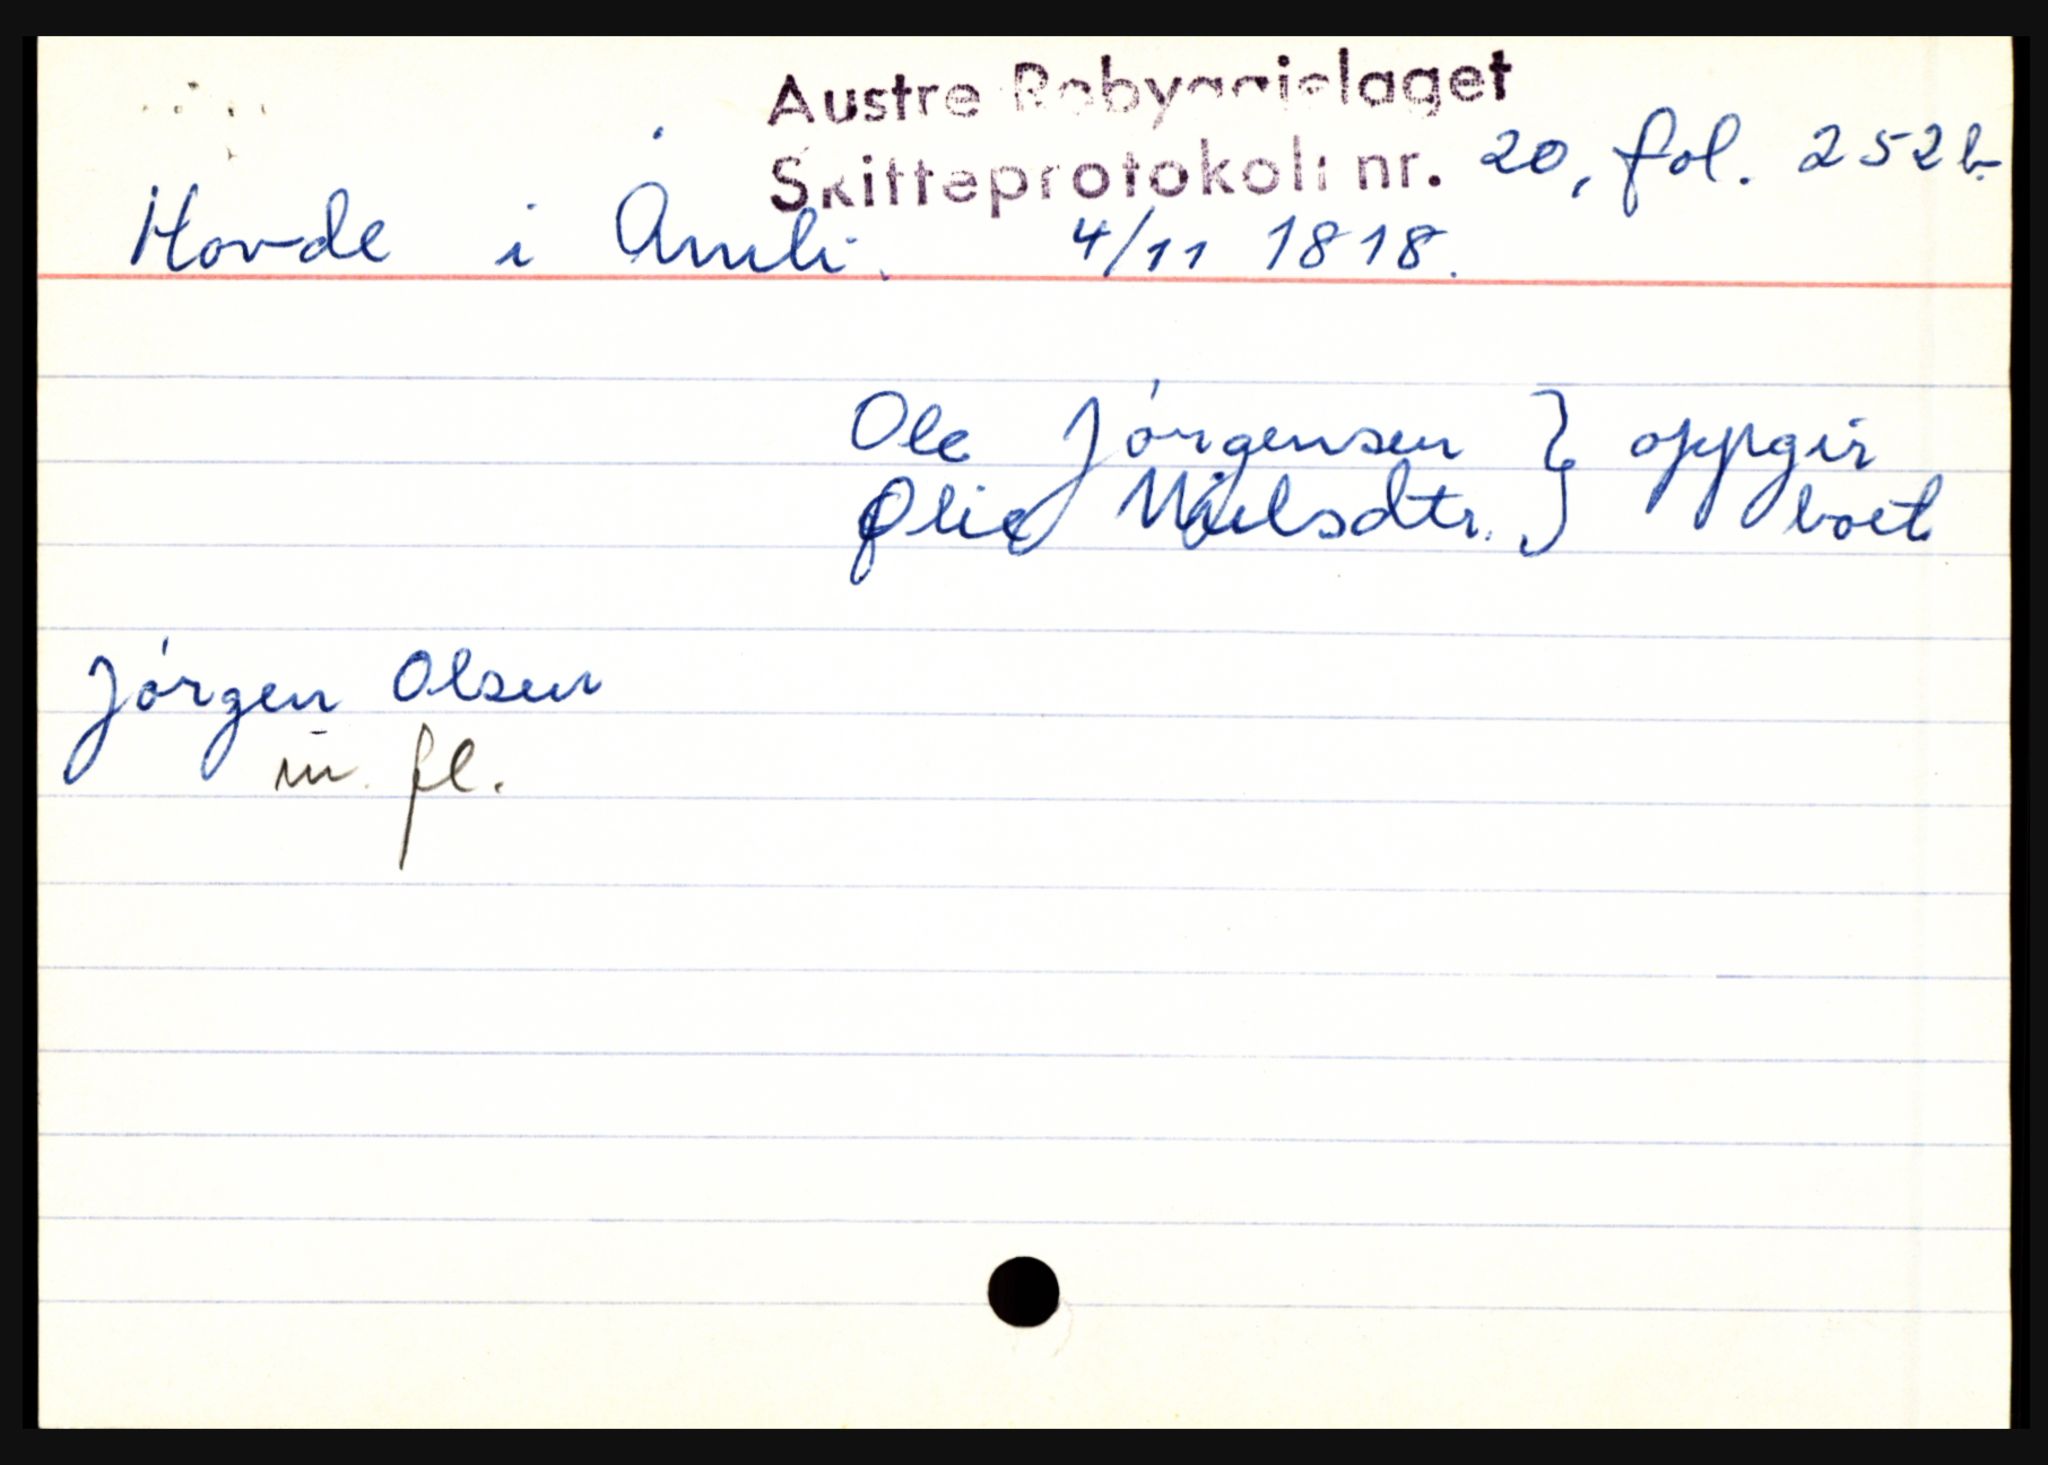 Austre Robyggjelaget
Skifteprotokoll nr. 20, fol. 252b.
Hovde i Åmli. 4/11 1818.
Ole Jórgensen } oppgir
Nielsdtr. } boet
Jórgen Olsen
m. fl.